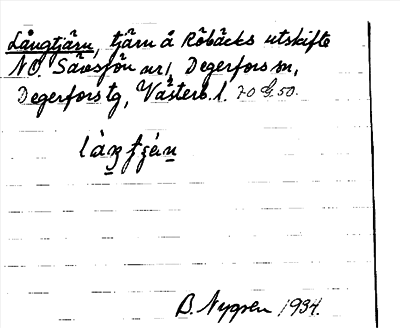 Långtjärn, tjärn å Röbäcks utskifte
NO. Sävsjön nr 1, Degerfors sn,
Degerfors tg, Västerb. l. 70 G. 50.
B. Nygren 1934.